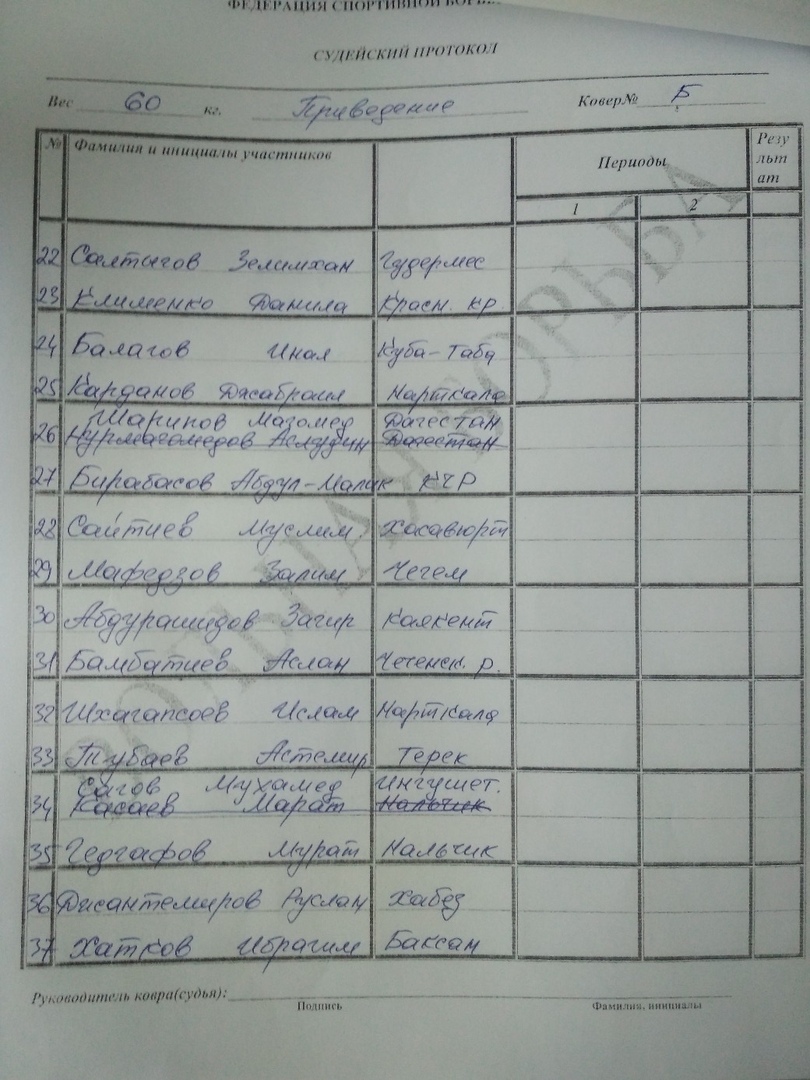 ФЕДЕРАЦИЯ СПОРТИВНОЙ БОРЬБЫ
СУДЕЙСКИЙ ПРОТОКОЛ
Вес 60 кг. Приведение Ковер№ Б
№ Фамилия и инициалы участников Периоды Резу
льт
ат
1 2
22 Салтыгов Зелимхан Гудермес
23 Клименко Данила Красн. кр.
24 Балагов Инал Куба-Таба
25 Карданов Джабраил Нарткала
Шарипов Магомед Дагестан
26 Нурмагомедов Дагестан
27 Бирабасов Абдул-Малик КЧР
28 Сайтиев Муслим. Хасавюрт
29 Мафедзов Залим Чегем
30 Абдурашидов Загир Каякент
31 Бамбатиев Аслан Чеченск. р.
32 Шхагапсоев Ислам Нарткала
33 Тубаев Астемир Терек
Сагов Мухамед Ингушет.
34 Касаев Марат Нальчик
35 Гедгафов Мурат Нальчик
36 Джантемиров Руслан Хабез
37 Хатков Ибрагим Баксан
Руководитель ковра(судья):
Подпись Фамилия, инициалы
ВОЛЬНАЯ БОРЬБА